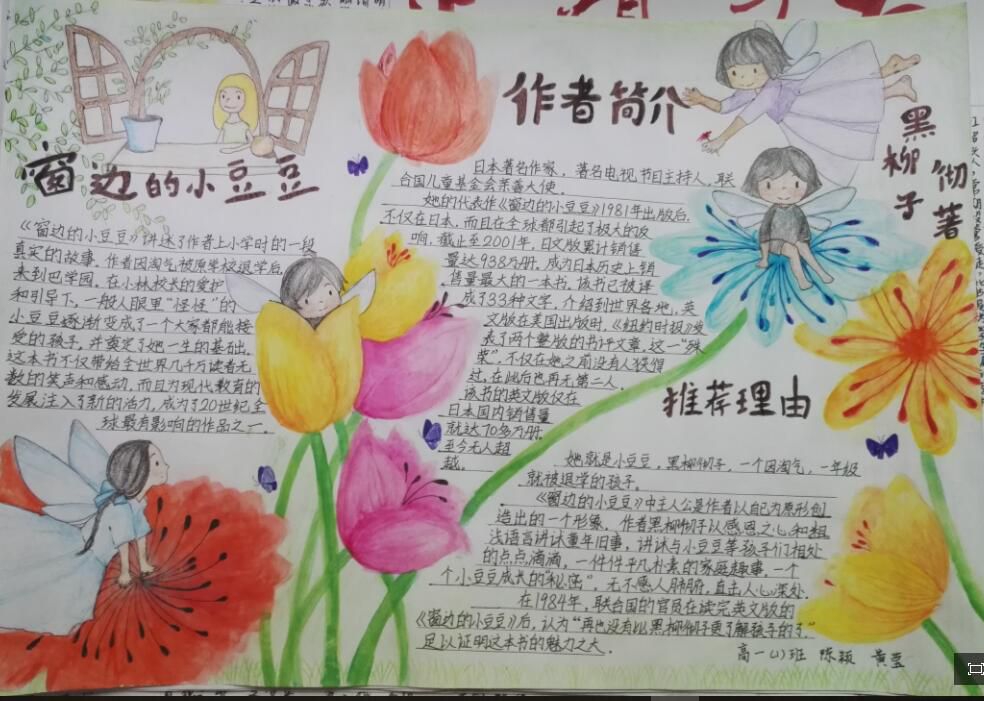 窗边的小豆豆
《窗边的小豆豆》讲述了作者上小学时的一段
真实的故事。作者因淘气被原学校退学后,
来到巴学园。在小林校长的爱护
和引导下,一般人眼里“怪怪”的
小豆豆逐渐变成了一个大家都能接
受的孩子,并奠定了她一生的基础。
这本书不仅带给全世界几千万读者无
数的笑声和感动,而且为现代教育的
发展注入了新的活力,成为了20世纪全
球最有影响的作品之一。
作者简介
黑柳彻子 著
日本著名作家,著名电视节目主持人,联
合国儿童基金会亲善大使。
她的代表作《窗边的小豆豆》1981年出版后,
不仅在日本,而且在全球都引起了极大的反
响。截止至2001年,日文版累计销售
量达938万册,成为日本历史上销
售量最大的一本书。该书已被译
成了33种文字,介绍到世界各地,英
文版在美国出版时,《纽约时报》发
表了两个整版的书评文章,这一“殊
荣”,不仅在她之前没有人获得
过,在此后也再无第二人。
该书的英文版仅在
日本国内销售量
就达70多万册,
至今无人超
越。
推荐理由
她就是小豆豆,黑柳彻子,一个因淘气,一年级
就被退学的孩子。
《窗边的小豆豆》中主人公是作者以自己为原形创
造出的一个形象。作者黑柳彻子以感恩之心和粗
浅语言讲述童年旧事,讲述与小豆豆等孩子们相处
的点点滴滴,一件件平凡朴素的家庭趣事,一个
个小豆豆成长的“秘密”,无不感人肺腑,直击人心深处。
在1984年,联合国的官员在读完英文版的
《窗边的小豆豆》后,认为“再也没有比黑柳彻子更了解孩子的了”
足以证明这本书的魅力之大。
高一(1)班 陈颖 黄莹